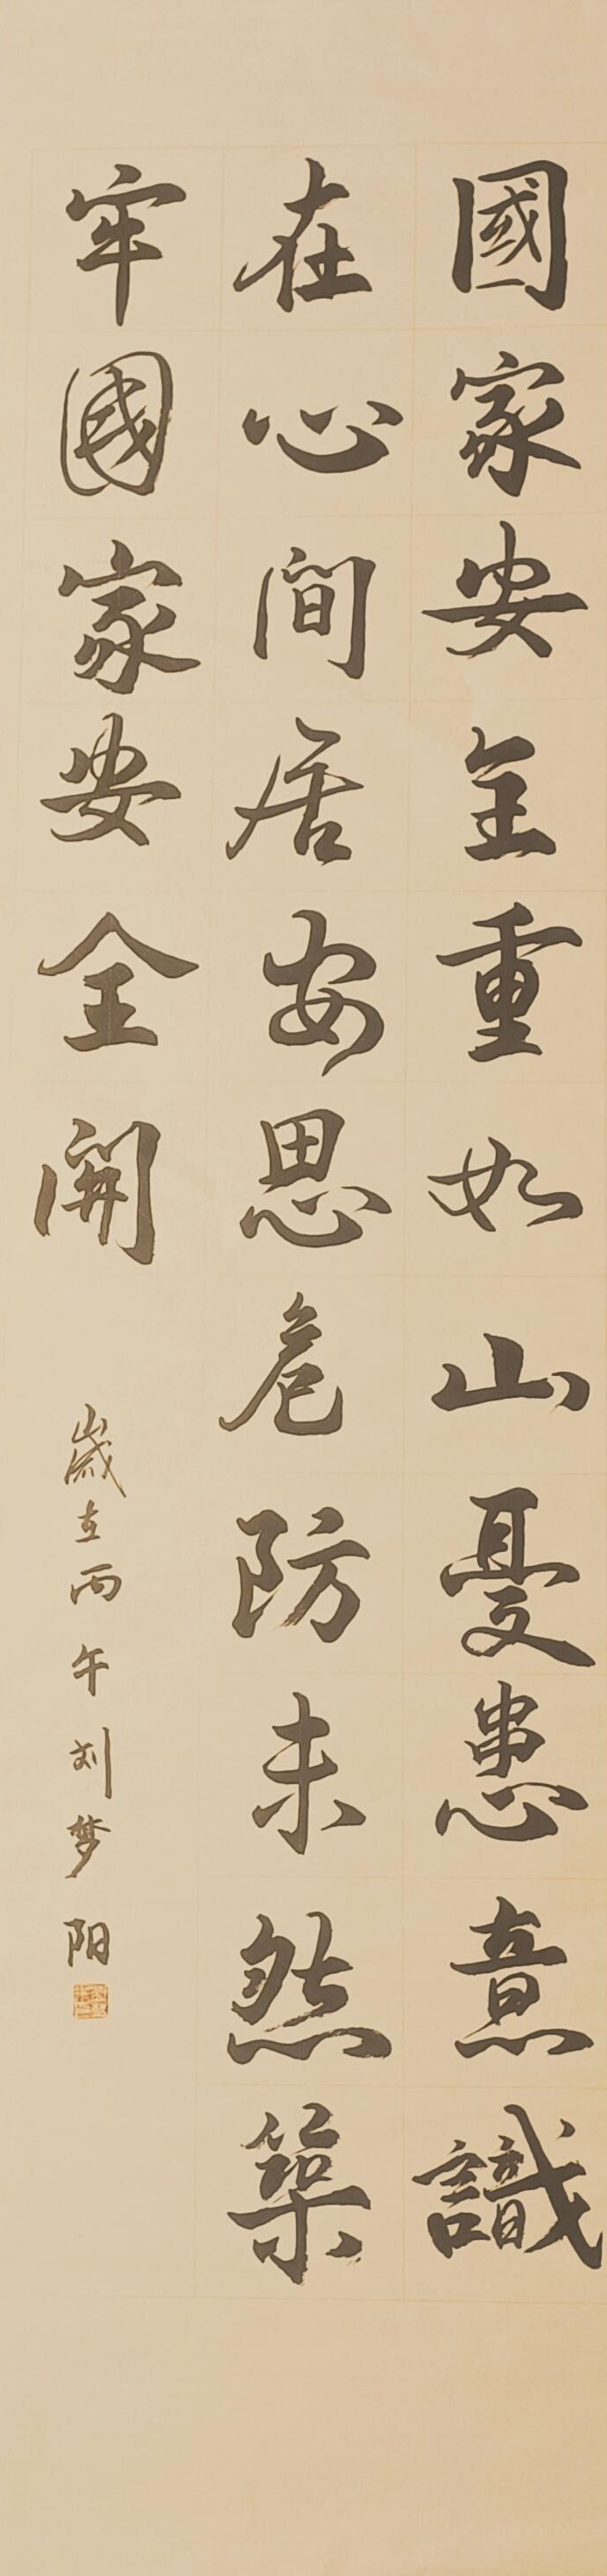 國家安全重如山憂患意識
在心间居安思危防未然築
牢國家安全開
歲在丙午刘梦阳